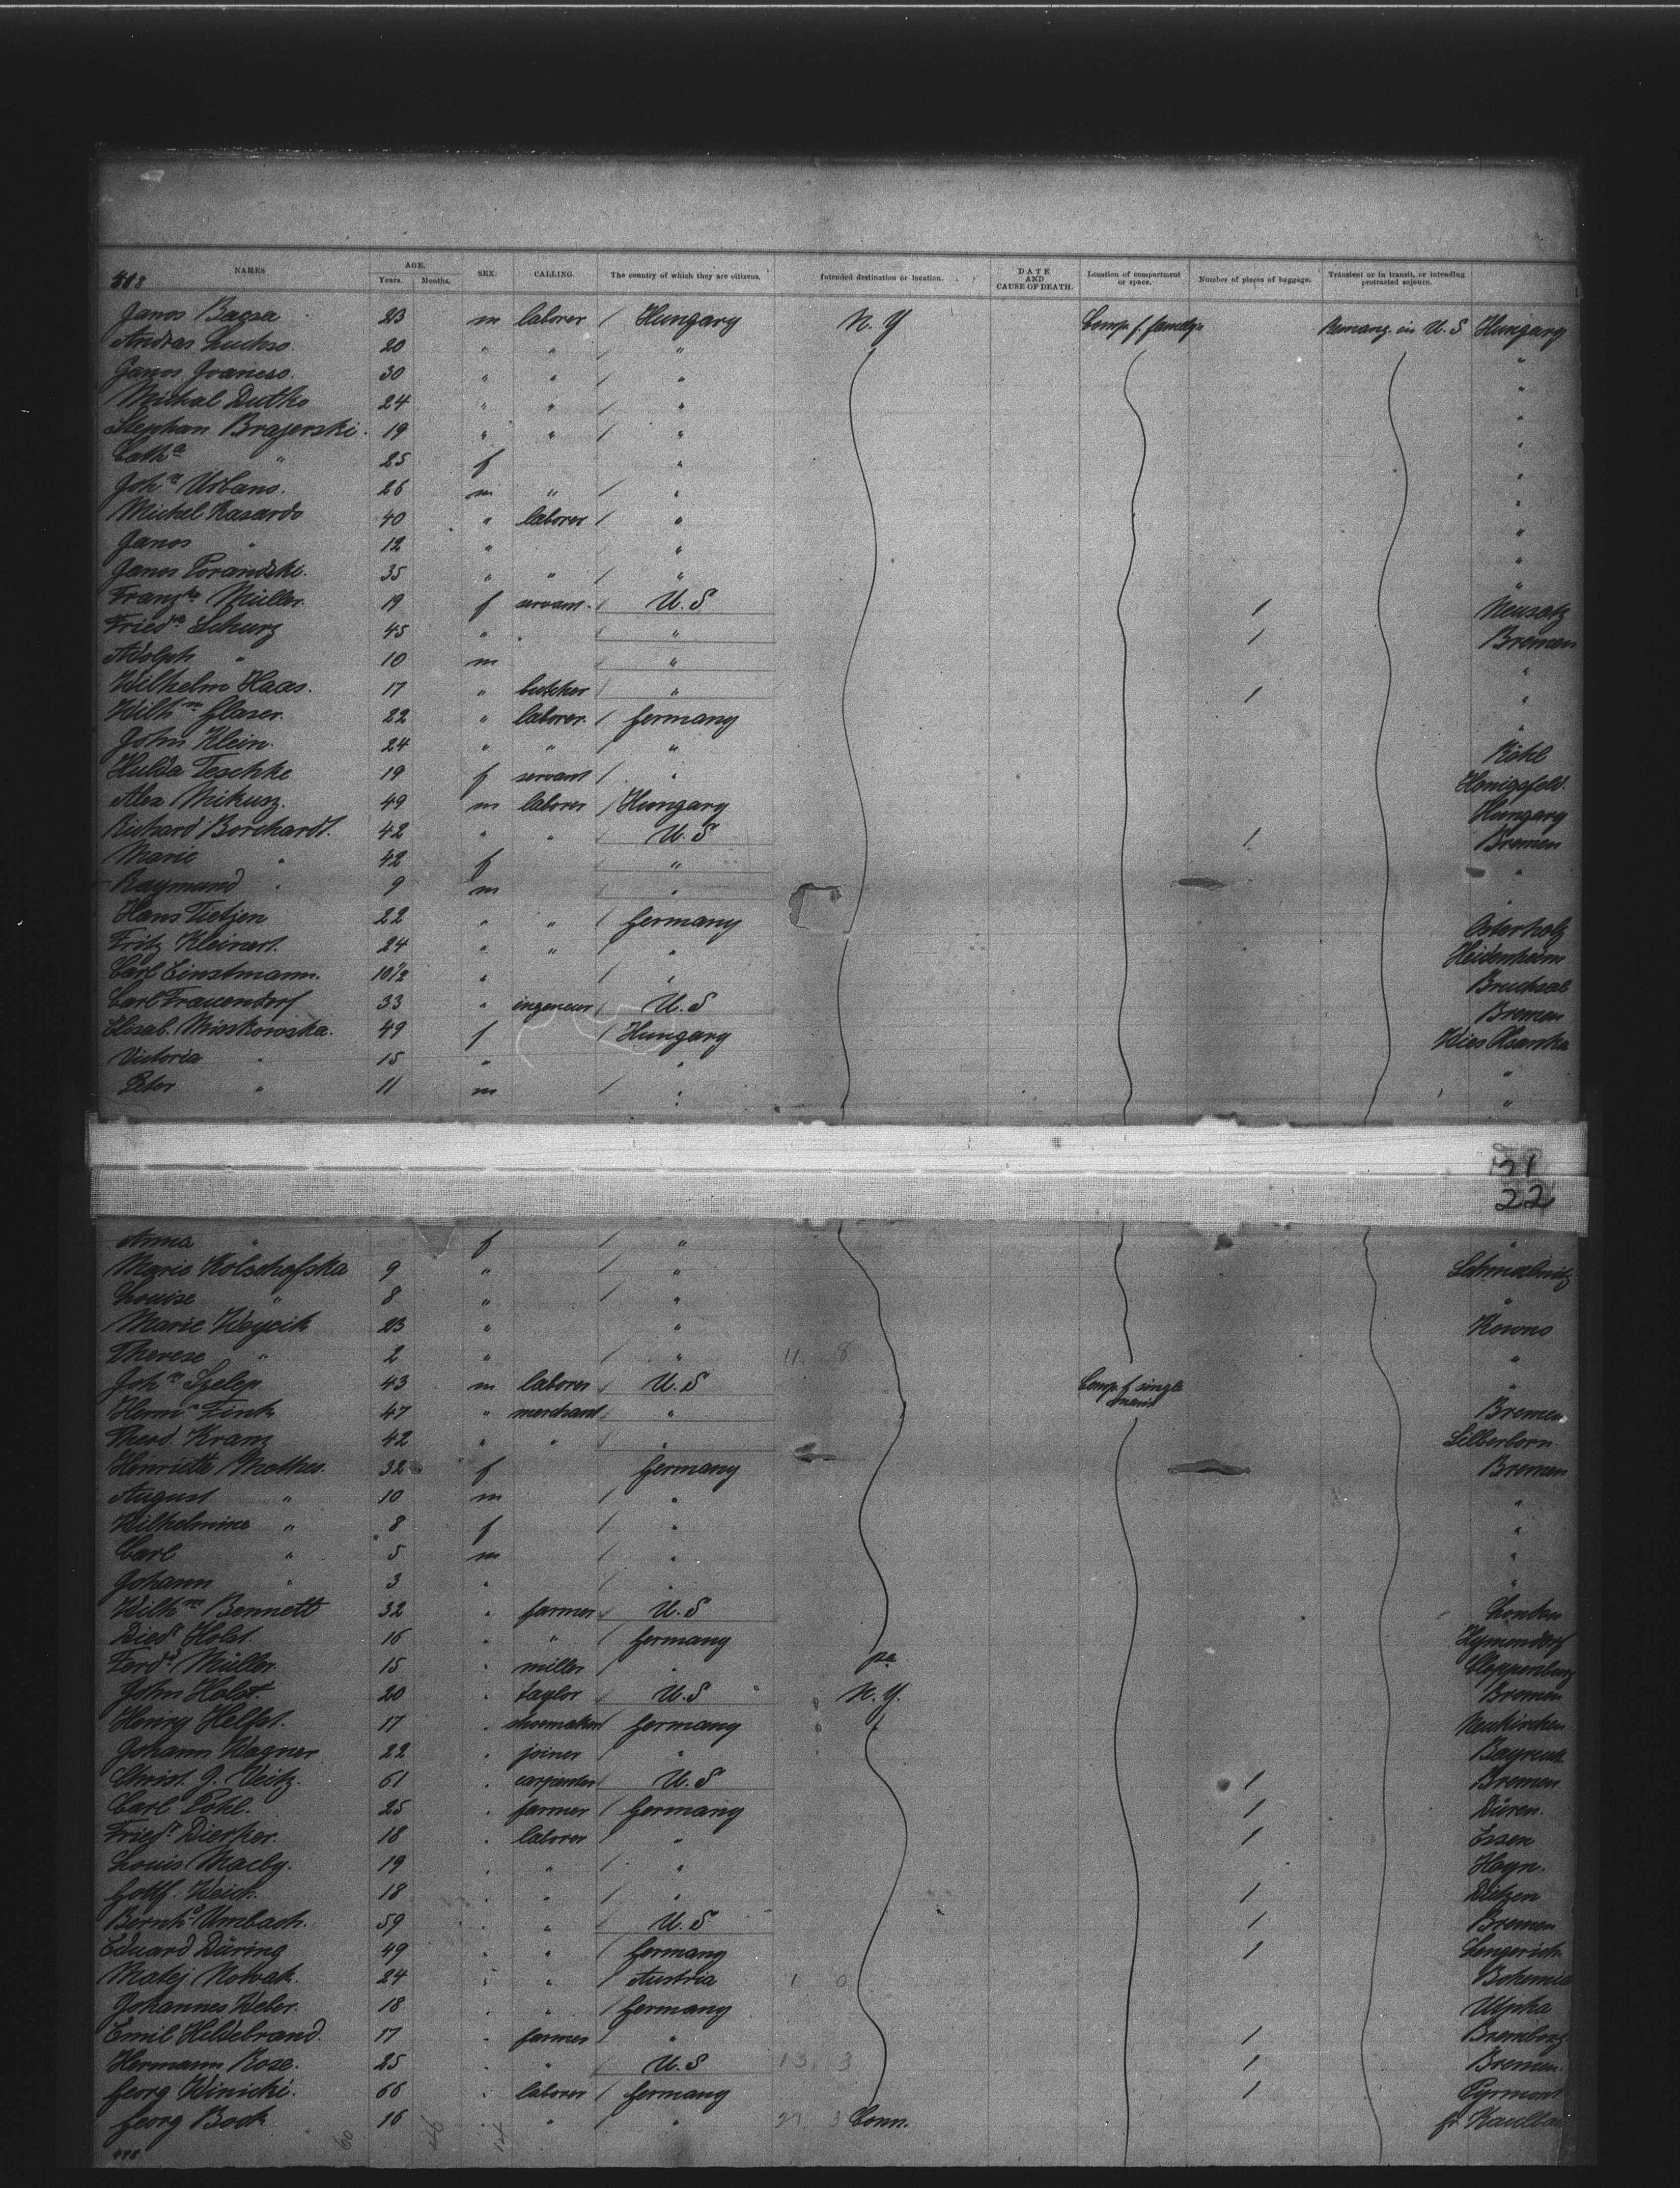 NAMES AGE. Years. Months. SEX. CALLING. The country of which they are citizens. Intended destination or location. DATE AND CAUSE OF DEATH. Location of compartment or space. Number of pieces of baggage. Transient or in transit, or intending protracted sojourn.
Janos Bacsa 23 m laborer / Hungary N. Y Comp. f. familys Remang. in U. S Hungary
Andras 20 " " / " "
Janos Ivancso. 30 " " / " "
Michal Dutko 24 " " / " "
Stephan Brajerski. 19 " " / " "
Cath.a " 25 f " "
Joh.n Urbano. 26 m " / " "
Michel Kasardo 40 " laborer / " "
Janos " 12 " " "
Janos Porandski. 35 " " / " "
Müller. 19 f servant. / U. S / Neusatz
Fried.e Schurz 45 " / " / Bremen
Adolph " 10 m / " "
Wilhelm Haas. 17 " butcher / " / "
Wilh.m Glaser. 22 " laborer. / Germany "
John Klein. 24 " " / " Röhl
Hulda Teschke 19 f servant / " Honigsfeld.
Alex Mikusz. 49 m laborer / Hungary Hungary
Richard Borchardt. 42 " " U. S / Bremen
Marie " 42 f " "
Raymund " 9 m " "
Hans Tietjen 22 " " / Germany Osterholz
Fritz Kleinert. 24 " " / " Heidenheim
Carl Einstmann. 10 1/2 " / " Bruchsal
Carl Frauendorf 33 " ingeneur / U. S Bremen
Elisab. Minkowska. 49 f / Hungary
Victoria " 15 " " "
Peter " 11 m / " "
21
22
Anna " f / " "
Marie Kolschafska 9 " / " Schmalnitz
Louise " 8 " / " "
Marie Woycik 23 " " Kowno
Therese " 2 " / " 11. 8 "
Joh.n Szelep 43 m laborer / U. S Comp. f. single men "
Herm.n Fink 47 " merchant / " Bremen
Theod. Kranz 42 " " / " Silberborn.
Henriette Mathes. 32 f Germany Bremen
August " 10 m / " "
Wilhelmine " 8 f / " "
Carl " 5 m / " "
Johann " 3 " / " "
Wilh.m Bennett 32 " farmer / U. S London
Died.r Holst. 16 " " / Germany
Ferd.d Müller. 15 " miller / " pa Cloppenburg
John Holst. 20 " taylor / U. S N. Y. Bremen
Henry Helfst. 17 " shoemaker / Germany Neukirchen
Johann Wagner 22 " joiner / " Bayreuth
Christ. J. Veitz. 61 " carpenter / U. S / Bremen
Carl Pohl. 25 " farmer / Germany / Düren.
Fried.r Dierker. 18 " laborer / " / Essen
Louis Macby. 19 " " / " Hayn.
Gottf. Weich. 18 " " / " /
Bernh.d Umbach. 59 " " / U. S / Bremen
Eduard Düring 49 " " / Germany / Lengerich
Matej Nowak. 24 " " / Austria 1 0 Bohemia
Johannes Weber. 18 " " / Germany Utpha
Emil Hildebrand. 17 " farmer / " / Bromberg
Hermann Rose. 25 " " / U. S 13. 3 / Bremen.
Georg Winicki. 66 " laborer / Germany / Pyrmont
Georg Bock 16 " " / " 3 Conn.